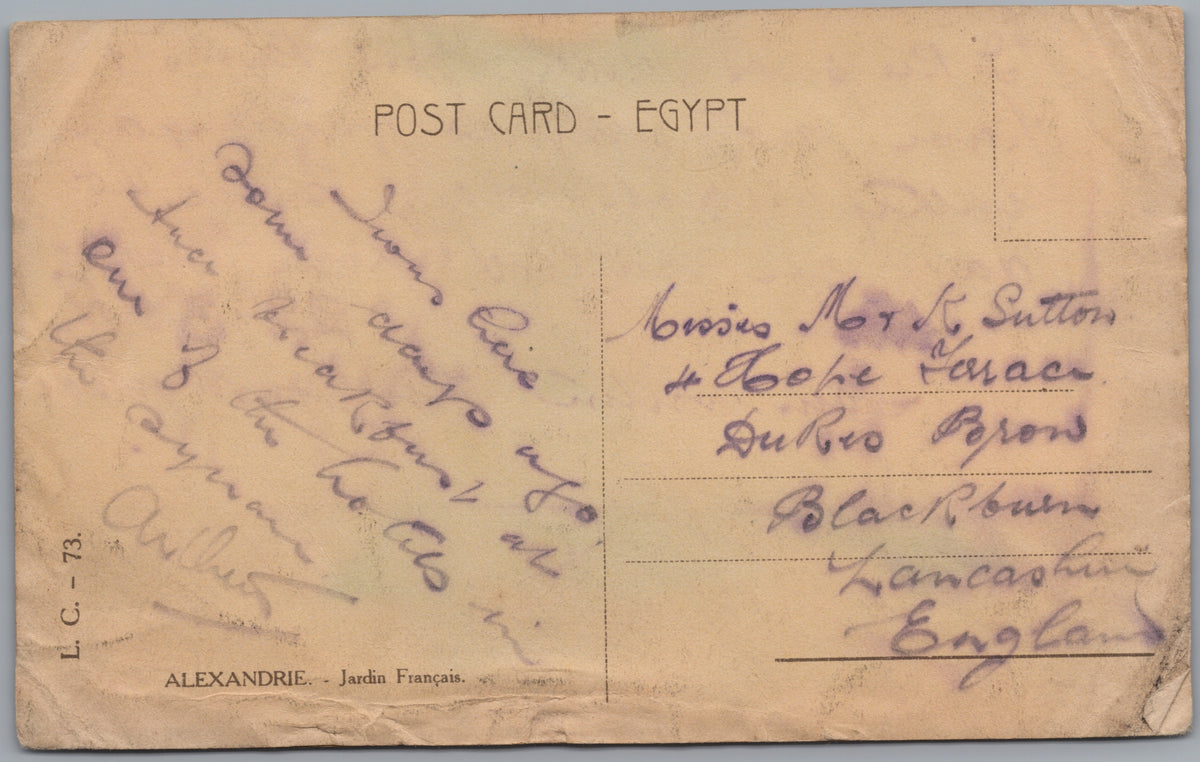 POST CARD - EGYPT
I was here
some days ago
Had breakfast at
one of the hotels in
the square
Arthur
Misses M & K Sutton
4 Hope Terace
Dukes Brow
Blackburn
Lancashire
England
L. C. - 73.
ALEXANDRIE. - Jardin Français.